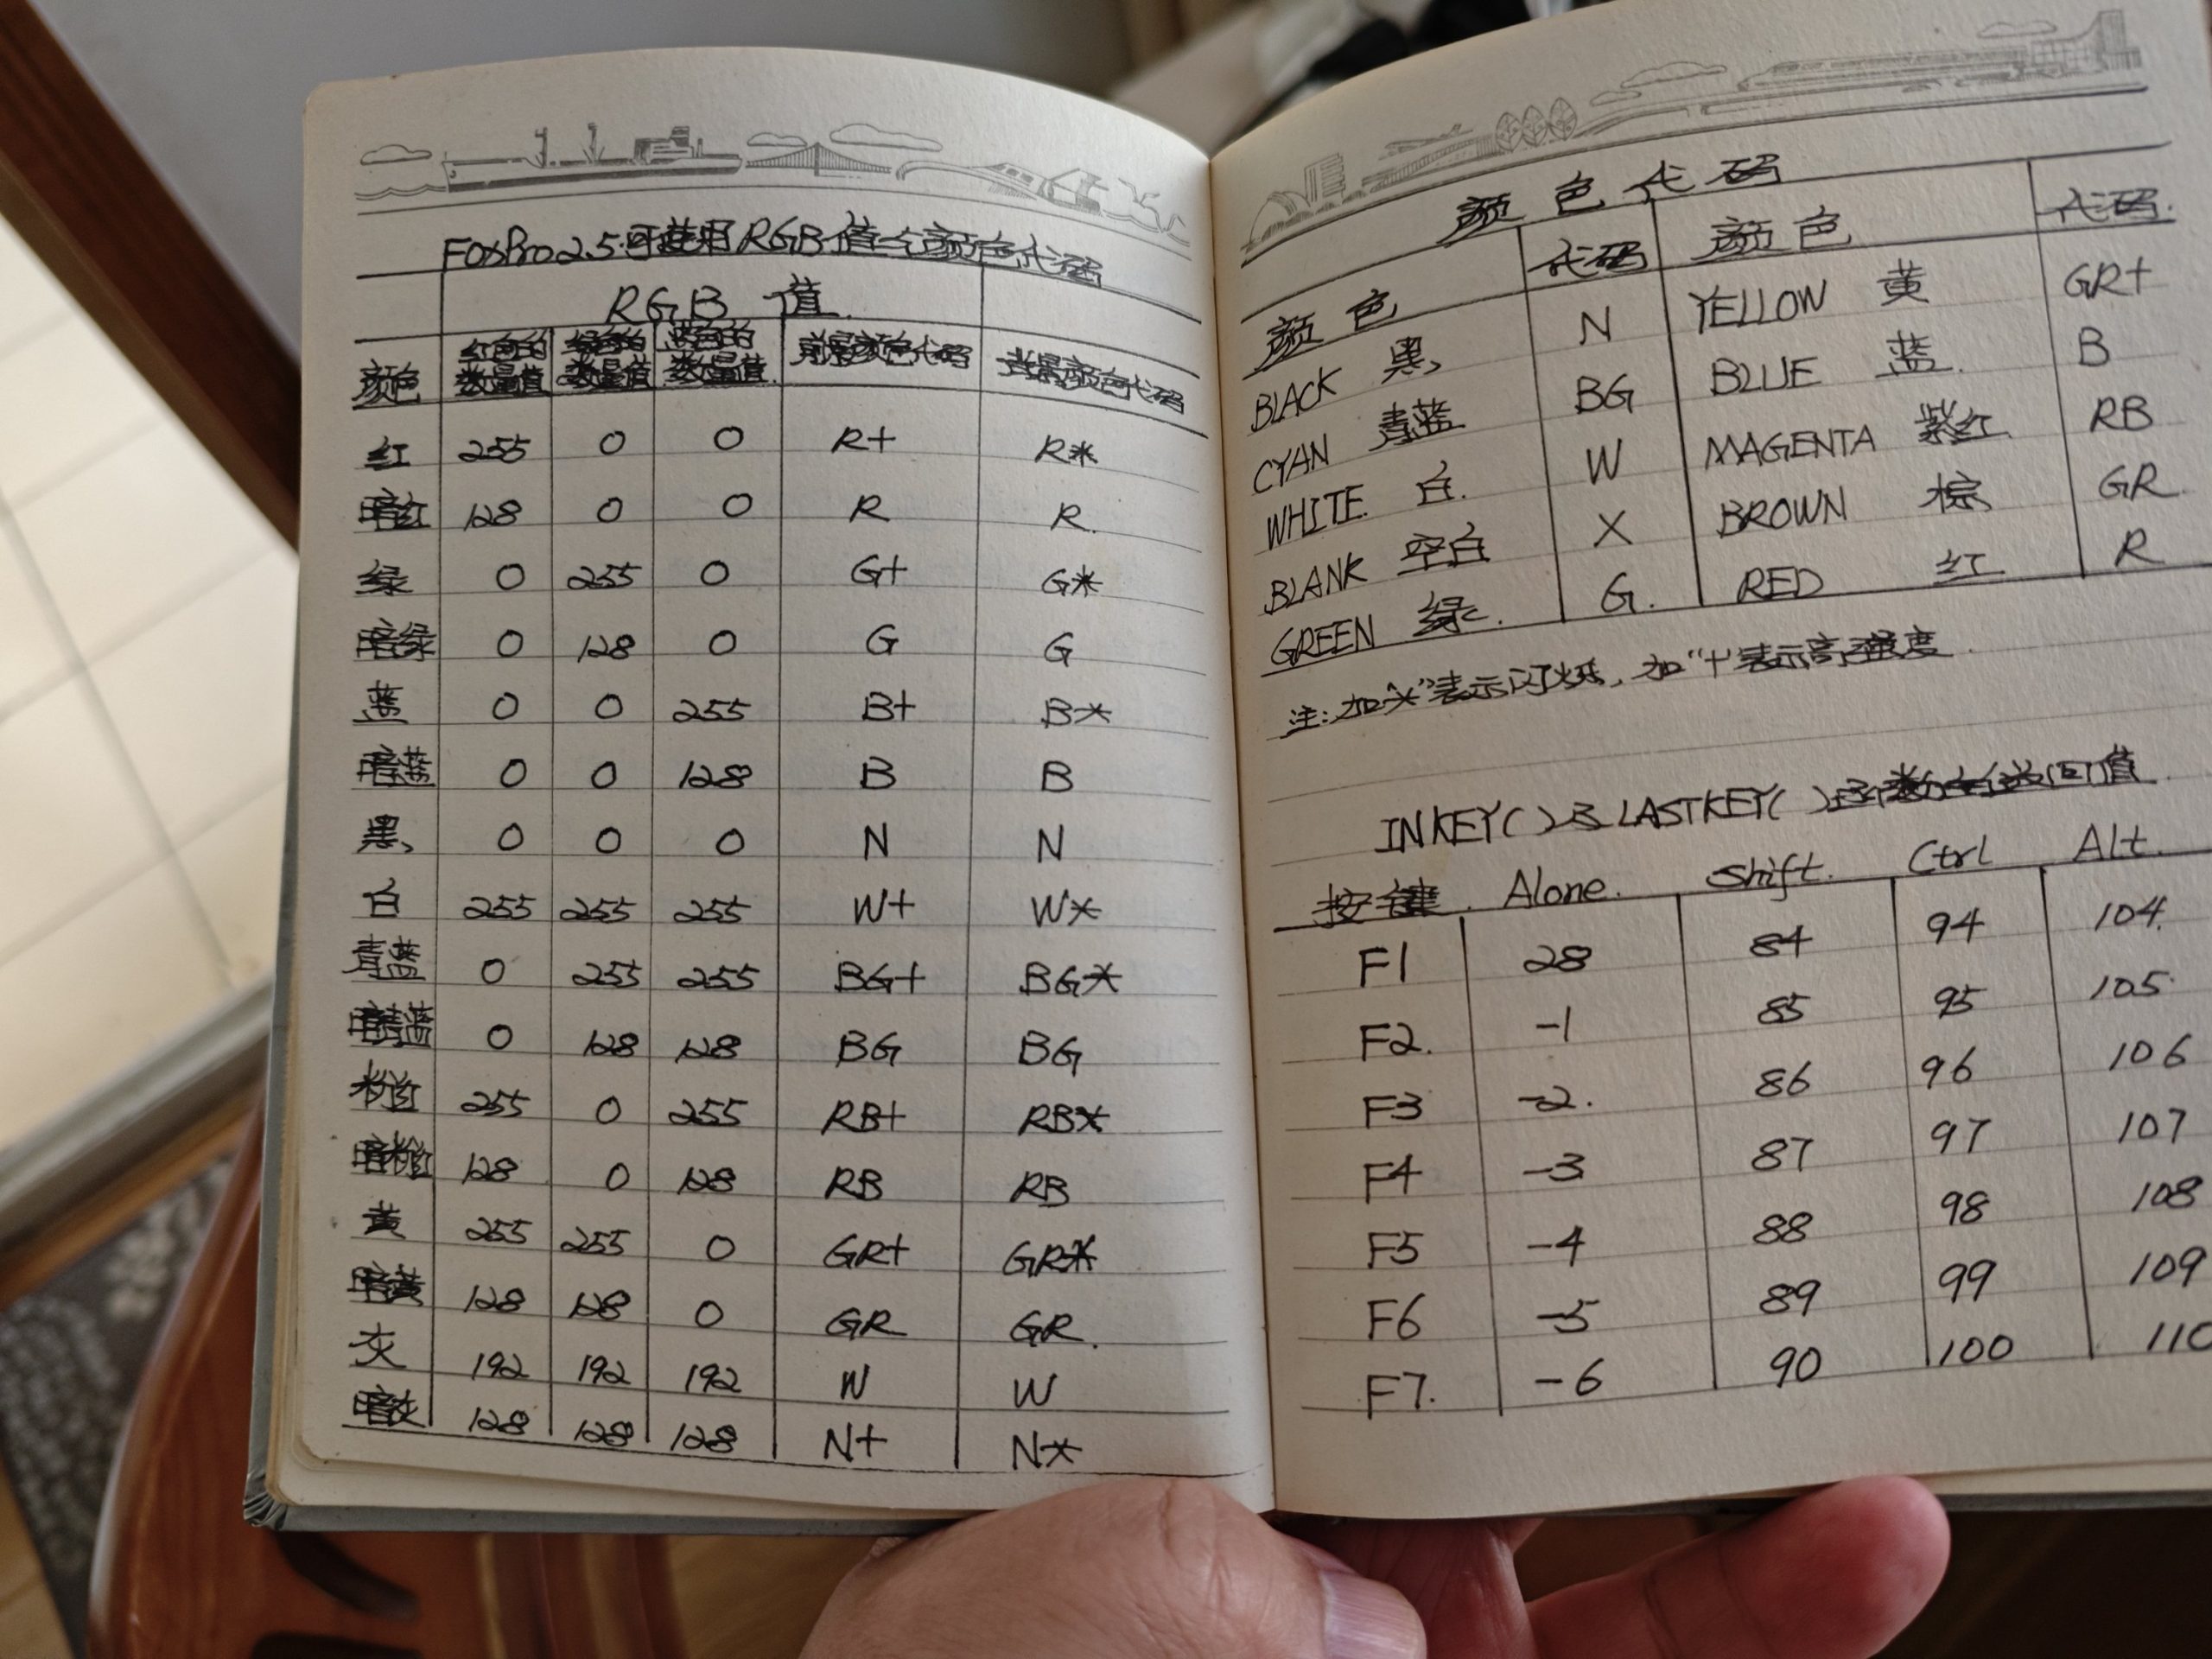 FoxPro2.5可使用RGB值与颜色代码
RGB 值
颜色 红色的数量值 绿色的数量值 蓝色的数量值 前景颜色代码 背景颜色代码
红 255 0 0 R+ R*
暗红 128 0 0 R R
绿 0 255 0 G+ G*
暗绿 0 128 0 G G
蓝 0 0 255 B+ B*
暗蓝 0 0 128 B B
黑 0 0 0 N N
白 255 255 255 W+ W*
青蓝 0 255 255 BG+ BG*
暗青蓝 0 128 128 BG BG
粉红 255 0 255 RB+ RB*
暗粉红 128 0 128 RB RB
黄 255 255 0 GR+ GR*
暗黄 128 128 0 GR GR
灰 192 192 192 W W
暗灰 128 128 128 N+ N*
颜色代码
颜色 代码 颜色 代码
BLACK 黑 N YELLOW 黄 GR+
CYAN 青蓝 BG BLUE 蓝 B
WHITE 白 W MAGENTA 紫红 RB
BLANK 空白 X BROWN 棕 GR
GREEN 绿 G RED 红 R
注:加"*"表示闪烁,加"+"表示高强度
INKEY()及LASTKEY()函数的返回值
按键 Alone. Shift. Ctrl Alt.
F1 28 84 94 104
F2. -1 85 95 105
F3 -2. 86 96 106
F4 -3 87 97 107
F5 -4 88 98 108
F6 -5 89 99 109
F7. -6 90 100 110